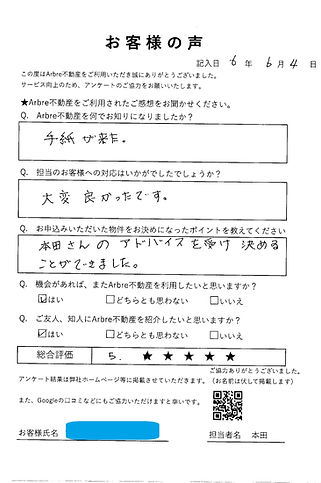 お客様の声
記入日 6 年 6 月 4 日
この度はArbre不動産をご利用いただき誠にありがとうございました。
サービス向上のため、アンケートのご協力をお願いいたします。
★Arbre不動産をご利用されたご感想をお聞かせください。
Q. Arbre不動産を何でお知りになりましたか？
手紙が来た。
Q. 担当のお客様への対応はいかがでしたでしょうか？
大変良かったです。
Q. お申込みいただいた物件をお決めになったポイントを教えてください
本田さんのアドバイスを受け決める
ことができました。
Q. 機会があれば、またArbre不動産を利用したいと思いますか？
☑はい □どちらとも思わない □いいえ
Q. ご友人、知人にArbre不動産を紹介したいと思いますか？
☑はい □どちらとも思わない □いいえ
総合評価 5. ★ ★ ★ ★ ★
ご協力ありがとうございました。
アンケート結果は弊社ホームページ等に掲載させていただきます。（お名前は伏して掲載します）
また、Googleの口コミなどにもご協力いただけますと幸いです。
お客様氏名 担当者名 本田